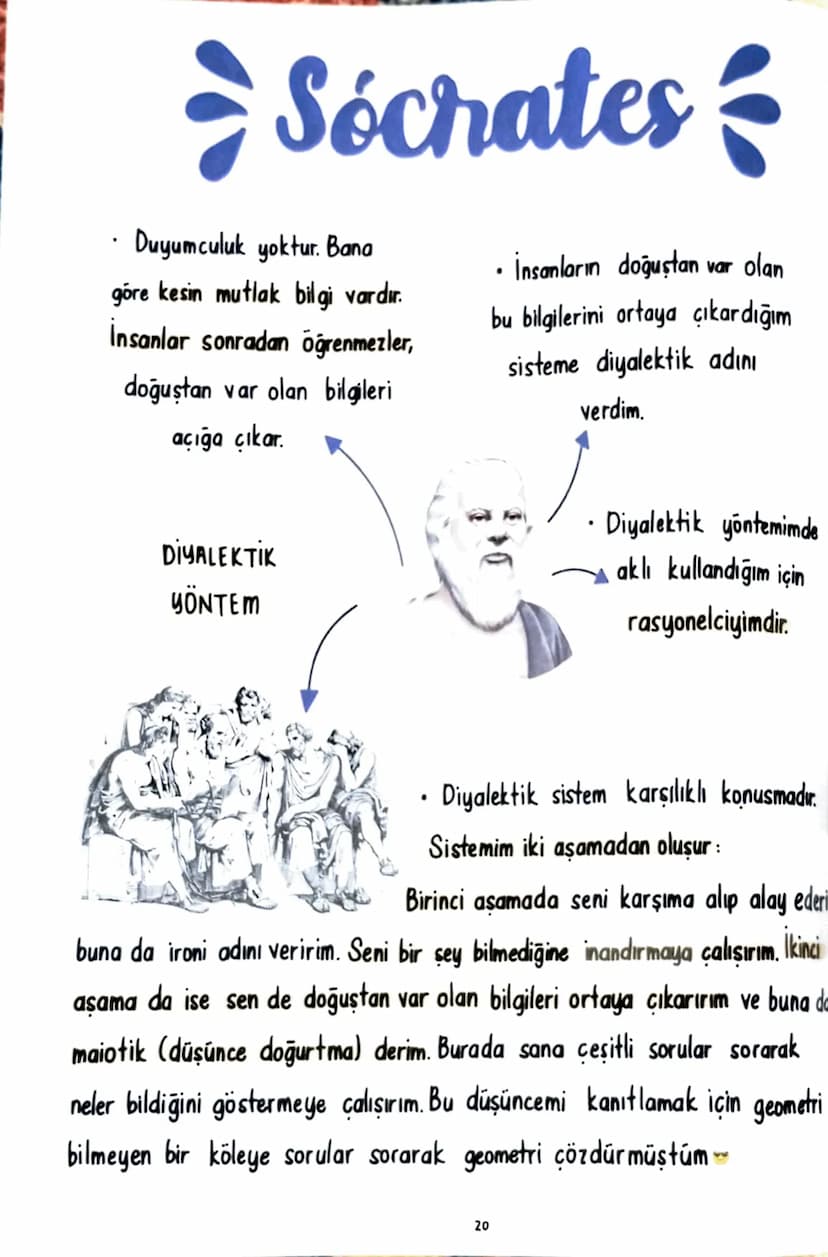 Sócrates
· Duyumculuk yoktur. Bana
göre kesin mutlak bilgi vardır.
İnsanlar sonradan öğrenmezler,
doğuştan var olan bilgileri
açığa çıkar.
· İnsanların doğuştan var olan
bu bilgilerini ortaya çıkardığım
sisteme diyalektik adını
verdim.
· Diyalektik yöntemimde
aklı kullandığım için
rasyonelciyimdir.
DİYALEKTİK
YÖNTEM
· Diyalektik sistem karşılıklı konuşmadır.
Sistemim iki aşamadan oluşur:
Birinci aşamada seni karşıma alıp alay ederi
buna da ironi adını veririm. Seni bir şey bilmediğine inandırmaya çalışırım. İkinci
aşama da ise sen de doğuştan var olan bilgileri ortaya çıkarırım ve buna da
maiotik (düşünce doğurtma) derim. Burada sana çeşitli sorular sorarak
neler bildiğini göstermeye çalışırım. Bu düşüncemi kanıtlamak için geometri
bilmeyen bir köleye sorular sorarak geometri çözdürmüştüm😎
20